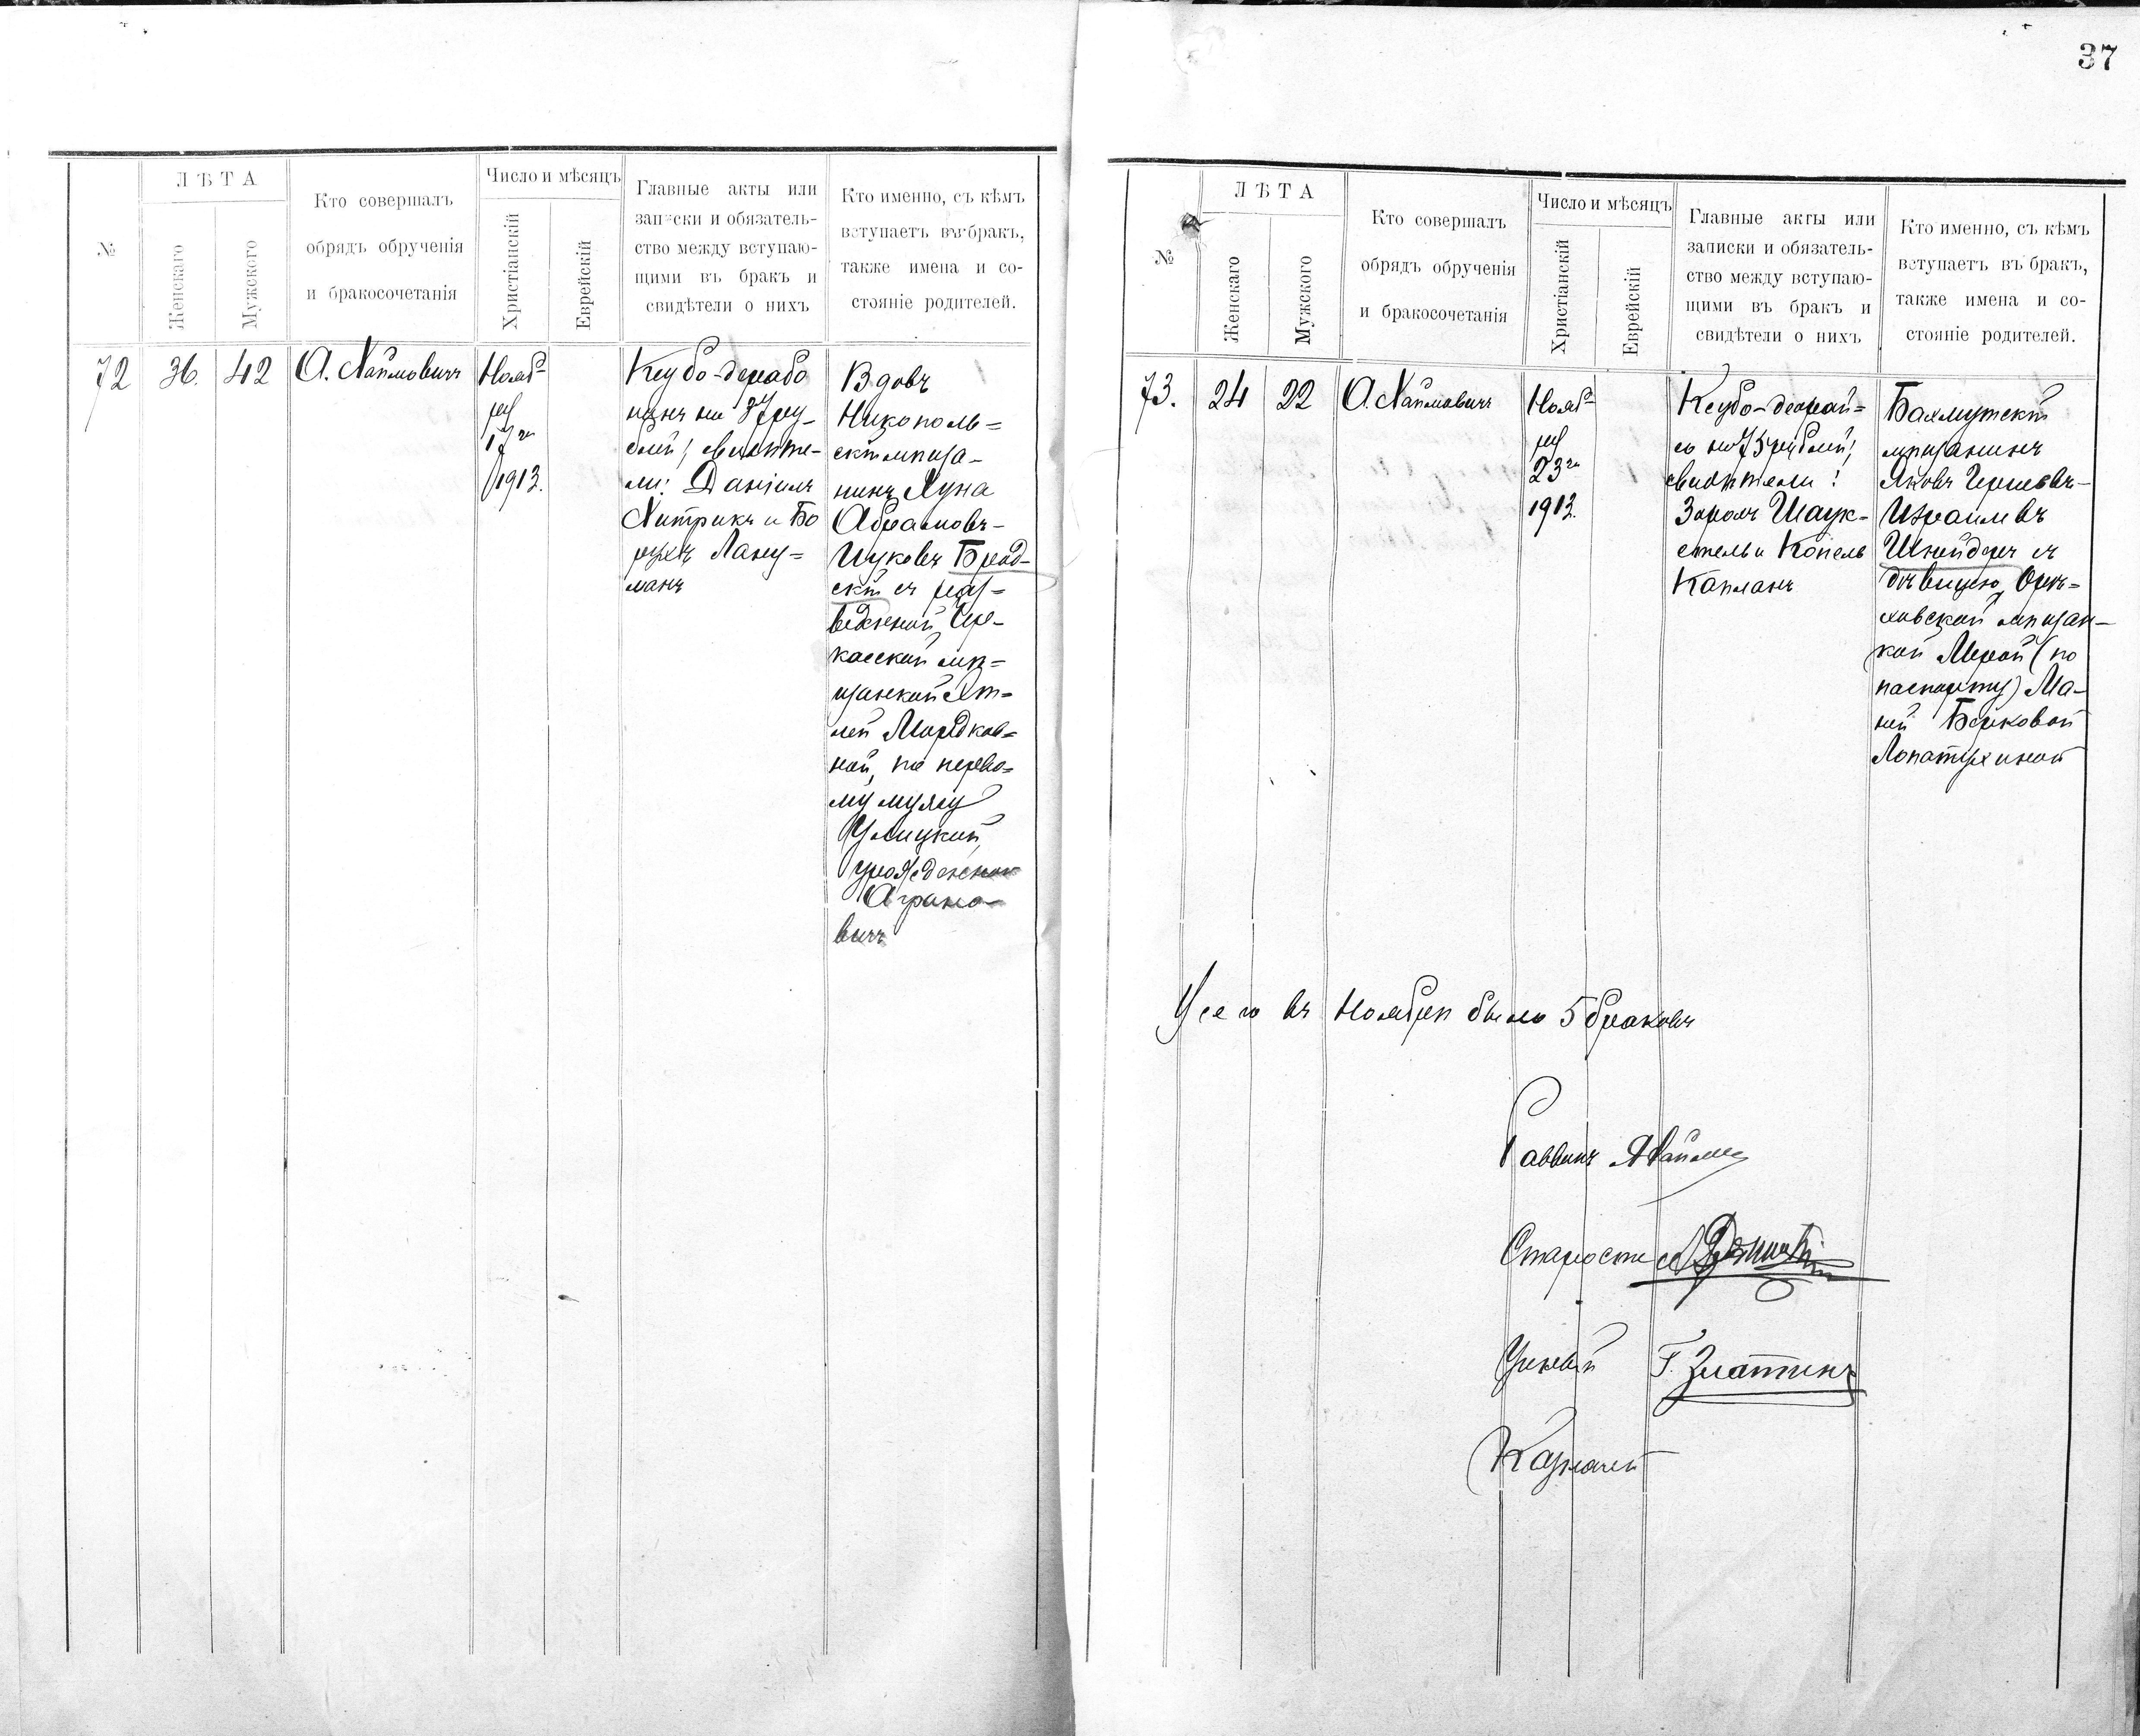 37
№
ЛѢТА
Женскаго
Мужского
Кто совершалъ
обрядъ обрученія
и бракосочетанія
Число и мѣсяцъ
Христіанскій
Еврейскій
Главные акты или
записки и обязатель-
ство между вступаю-
щими въ бракъ и
свидѣтели о нихъ
Кто именно, съ кѣмъ
вступаетъ въ бракъ,
также имена и со-
стояніе родителей.
72
36.
42
А. Хаймовичъ
Нояб-
ря
17го
1913.
Ксубо-дерабо
нинъ на
блей; свидѣте-
ли: Даніилъ
Хитрикъ и Бо
рухъ
манъ
Вдовъ
Никополь=
скій мѣща-
нинъ Хуна
Абрамовъ-
Ицковъ Брод-
скій съ раз=
веденной Чер-
касской мѣ=
щанкой Эт=
лей Мордков=
ной, по перво=
му мужу
Улицкий,
урожденной
Аграно-
вичъ
№
ЛѢТА
Женскаго
Мужского
Кто совершалъ
обрядъ обрученія
и бракосочетанія
Число и мѣсяцъ
Христіанскій
Еврейскій
Главные акты или
записки и обязатель-
ство между вступаю-
щими въ бракъ и
свидѣтели о нихъ
Кто именно, съ кѣмъ
вступаетъ въ бракъ,
также имена и со-
стояніе родителей.
73.
24
22
А. Хаймовичъ
Нояб=
ря
23го
1913.
Ксубо-деорай=
со на 75 рублей;
свидѣтели:
Шаук-
стель и Копель
Капланъ
Бахмутскій
мѣщанинъ
Яковъ Гершевъ-
Израилевъ
Шнейдеръ съ
дѣвицею, Орѣ=
ховской мѣщан-
кой Мерой (по
паспорту) Ма-
ней Берковой
Лопатухиной
Усего въ Ноябрѣ было 5 браковъ
Раввинъ АХайм
Староста
Ученый Г. Златкинъ
Казначей